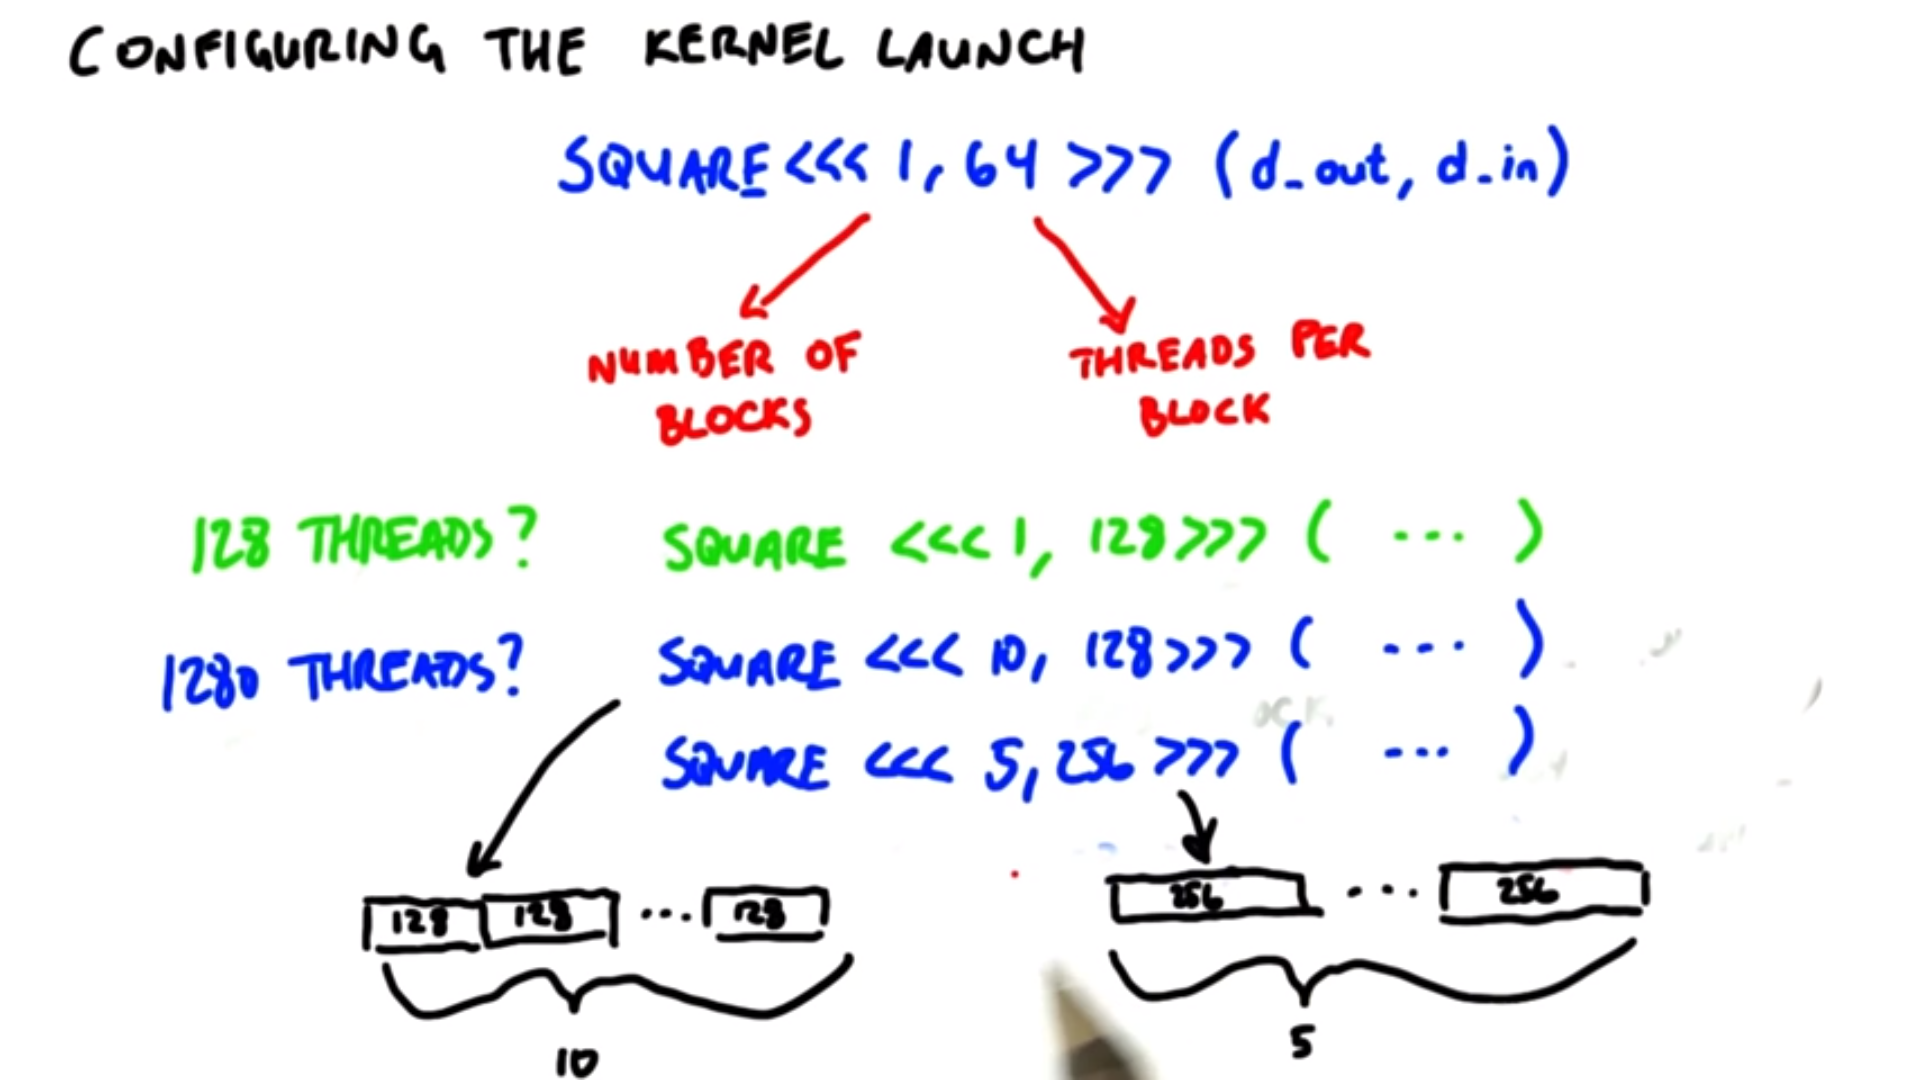 CONFIGURING THE KERNEL LAUNCH
SQUARE <<< 1, 64 >>> (d_out, d_in)
NUMBER OF BLOCKS
THREADS PER BLOCK
128 THREADS? SQUARE <<< 1, 128 >>> ( ... )
1280 THREADS? SQUARE <<< 10, 128 >>> ( ... )
SQUARE <<< 5, 256 >>> ( ... )
128 128 ... 128
256 ... 256
10
5